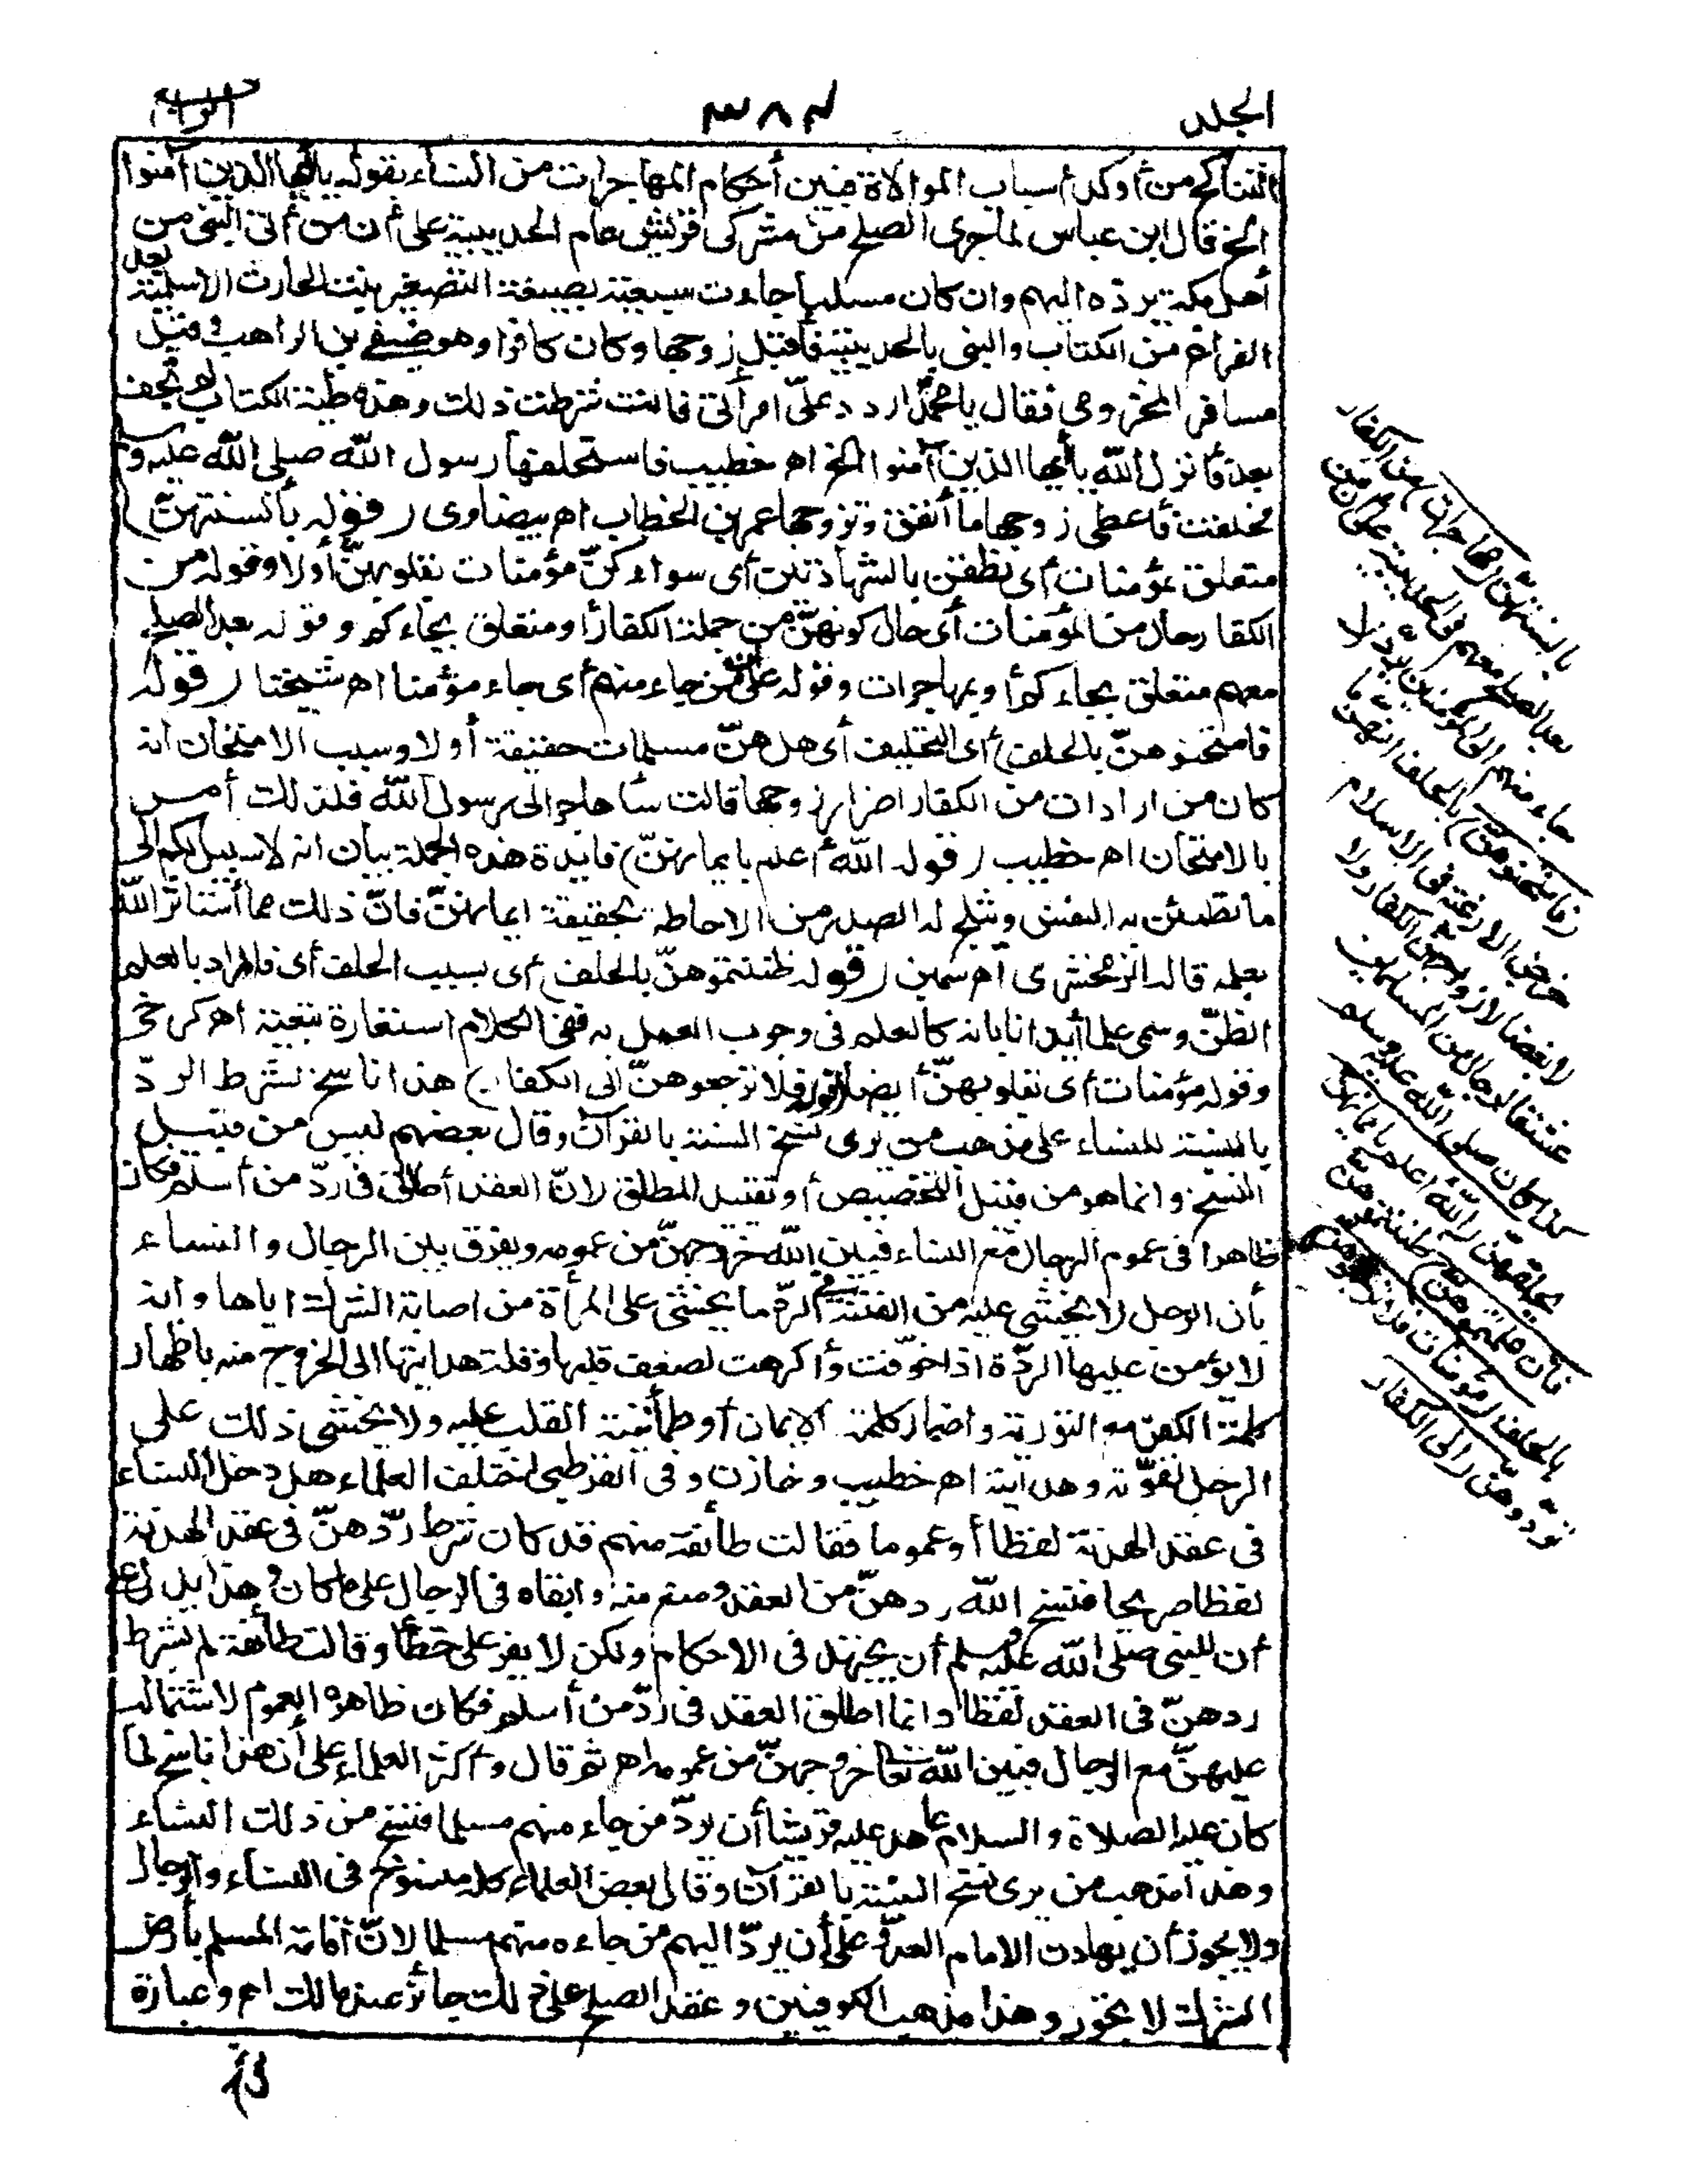 الجلد
٣٨٧
الرابع
التناكح من أوكد أسباب الموالاة فبين أحكام المهاجرات من النساء بقوله يا أيها الذين آمنوا
الخ قال ابن عباس لما جرى الصلح من مشركي قريش عام الحديبية على أن من أتى النبي من
أهل مكة يرده اليهم وان كان مسلما جاءت سبيعة بصيغة التصغير بنت الحارث الاسلمية بعد
الفراغ من الكتاب والنبي بالحديبية فأقبل زوجها وكان كافرا وهو صيفي بن الراهب وقيل
مسافر المخزومي فقال يا محمد اردد علىّ امرأتي فانت شرطت ذلك وهذه طينة الكتاب لم تجف
بعد فأنزل الله يا أيها الذين آمنوا الخ اهـ خطيب فاستحلفها رسول الله صلى الله عليه و
فحلفت فأعطى زوجها ما أنفق وتزوجها عمر بن الخطاب اهـ بيضاوى (قوله بألسنتهنّ)
متعلق بمؤمنات أى نطقن بالشهادتين أى سواء كنّ مؤمنات بقلوبهنّ أولا وقوله من
الكفار حال من المؤمنات أى حال كونهنّ من جملة الكفار أو متعلق بجاءكم وقوله بعد الصلح
معهم متعلق بجاءكم أو بمهاجرات وقوله على أن من جاء منهم أى جاء مؤمنا اهـ شيخنا (قوله
فامتحنوهنّ بالحلف) أى التحليف أى هل هنّ مسلمات حقيقة أولا وسبب الامتحان انه
كان من ارادت من الكفار اضرار زوجها قالت سأهاجر الى رسول الله فلذلك أمر
بالامتحان اهـ خطيب (قوله الله أعلم بايمانهنّ) فايدة هذه الجملة بيان انه لا سبيل لكم الى
ما تطمئن به النفس ويثلج له الصدر من الاحاطه بحقيقة ايمانهنّ فانّ ذلك مما أستأثر الله
بعلمه قاله الزمخشرى اهـ سمين (قوله ظننتموهنّ بالحلف) أى بسبب الحلف أى فالمراد بالعلم
الظنّ وسمى علما أيذانا بانه كالعلم فى وجوب العمل به ففى الكلام استعارة تبعية اهـ كرخى
وقوله مؤمنات أى بقلوبهنّ أيضا (قوله فلا ترجعوهنّ الى الكفار) هذا ناسخ لشرط الردّ
بالنسبة للنساء على مذهب من يرى نسخ السنة بالقرآن وقال بعضهم ليس من قبيل
النسخ وانما هو من قبيل التخصيص أو تقييد المطلق لانّ العقد أطلق فى ردّ من أسلم فكان
ظاهرا فى عموم الرجال مع النساء فبين الله خروجهنّ من عمومه ويفرق بين الرجال والنساء
بأن الرجل لا يخشى عليه من الفتنة فى الردّ ما يخشى على المرأة من اصابة المشرك اياها وانه
لا يؤمن عليها الردّة اذا خوّفت وأكرهت لضعف قلبها وقلة هدايتها الى الخروج منه باظهار
كلمة الكفر مع التورية واضمار كلمة الايمان أو طمأنينة القلب عليه ولا يخشى ذلك على
الرجل لقوّته وهدايته اهـ خطيب وخازن وفى القرطبى اختلف العلماء هل دخل النساء
فى عقد الهدنة لفظا أو عموما فقالت طائفة منهم قد كان شرط ردّهنّ فى عقد الهدنة
لفظا صريحا فنسخ الله ردهنّ من العقد ومنع منه وابقاه فى الرجال على ما كان وهذا يدل على
أن للنبى صلى الله عليه وسلم أن يجتهد فى الاحكام ولكن لا يقر على خطأ وقالت طائفة لم يشرط
ردهنّ فى العقد لفظا وانما اطلق العقد فى ردّ من أسلم فكان ظاهره العموم لاشتماله
عليهنّ مع الرجال فبين الله تعالى خروجهنّ من عمومه اهـ ثم قال وأكثر العلماء على أن هذا ناسخ لما
كان عليه الصلاة والسلام عاهد عليه قريشا أن يردّ من جاء منهم مسلما فنسخ من ذلك النساء
وهذا مذهب من يرى نسخ السنة بالقرآن وقال بعض العلماء كله منسوخ فى النساء والرجال
ولا يجوز أن يهادن الامام العدوّ على أن يردّ اليهم من جاءه منهم مسلما لانّ اقامة المسلم بأرض
الشرك لا تجوز وهذا مذهب الكوفيين وعقد الصلح على ذلك جائز عند مالك اهـ وعبارة
بالسنتهنّ (مهاجرات) من الكفار
بعد الصلح معهم فى الحديبية على أن من
جاء منهم الى المؤمنين يردّ لا
(فامتحنوهنّ) بالحلف انهنّ ما
خرجن الا رغبة فى الاسلام
لا بغضا لازواجهنّ الكفار ولا
عشقا لرجال من المسلمين
كذا كان صلى الله عليه وسلم
يحلفهنّ (الله اعلم بايمانهنّ
فان علمتموهنّ) ظننتموهنّ
بالحلف (مؤمنات فلا ترجعوهنّ)
تردّوهنّ (الى الكفار